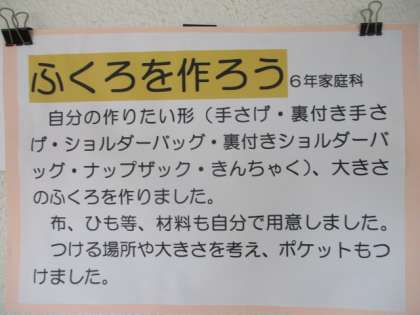 ふくろを作ろう 6年家庭科
自分の作りたい形（手さげ・裏付き手さ
げ・ショルダーバッグ・裏付きショルダーバ
ッグ・ナップザック・きんちゃく）、大きさ
のふくろを作りました。
布、ひも等、材料も自分で用意しました。
つける場所や大きさを考え、ポケットもつ
けました。